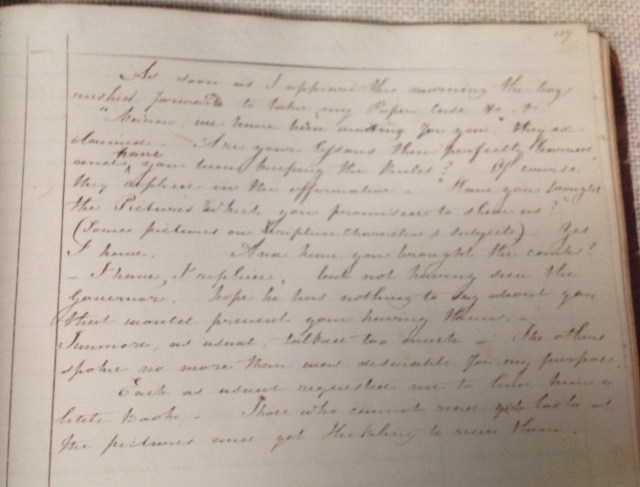 117
As soon as I appear this morning the boys
rushed forward to take my Paper case &c &c
"Ma'am we have been waiting for you" they ex-
claimed. — Are your lessons then perfectly learned
and have you been keeping the Rules? Of course
they replied in the affirmative. — "Have you brought
the Pictures which you promised to shew us?"
(Some pictures on Scripture characters & subjects) Yes
I have. And have you brought the cards?
— I have, I replied, but not having seen the
Governor. hope he has nothing to say about you
that would prevent your having them. —
as usual, talked too much — The others
spoke no more than was desirable for my purpose.
Each as usual requested me to lend him a
little Book. — Those who cannot read look at
the pictures and get to read them.